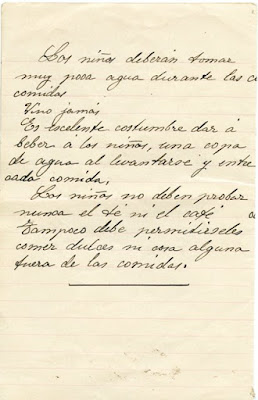 Los niños deberán tomar
muy poca agua durante las c
comidas
Vino jamás
Es escelente costumbre dar á
beber a los niños, una copa
de agua al levantarse y entre
cada comida,
Los niños no deben probar
nunca el té ni el café
Tampoco debe permitirseles
comer dulces ni cosa alguna
fuera de las comidas.